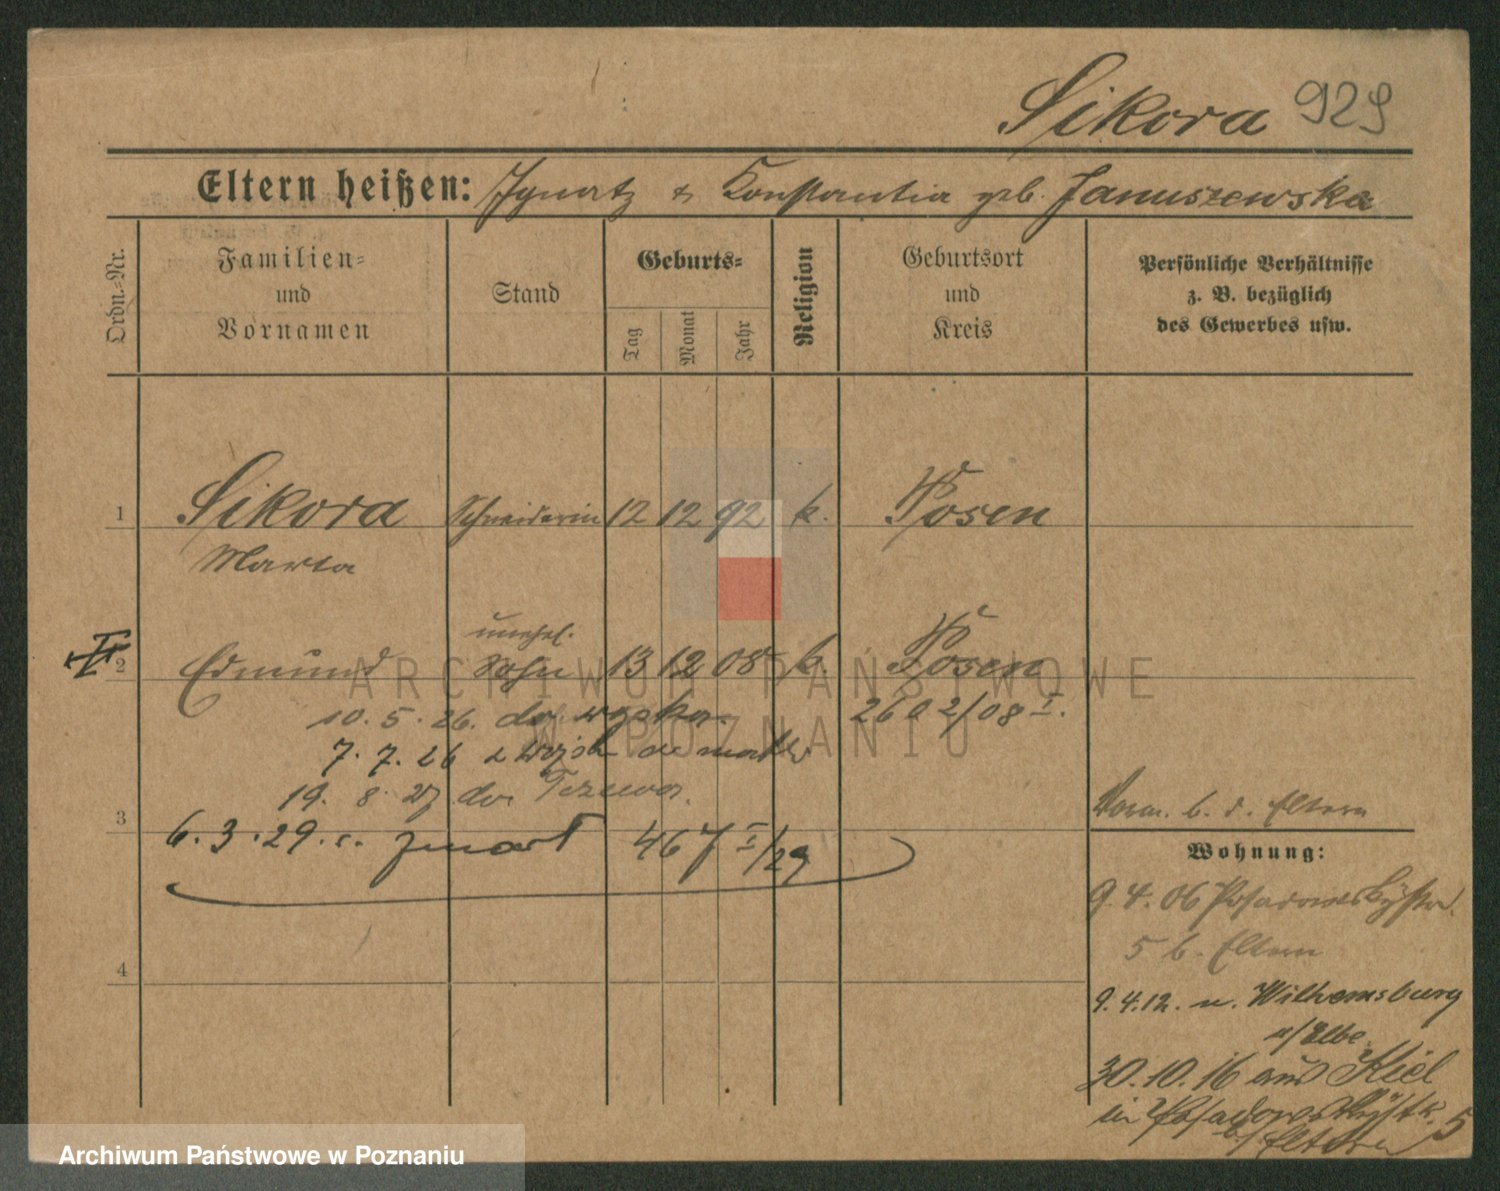 Sikora 929
Eltern heißen: Ignatz & Konstantia geb. Januszewska
Ordn.-Nr.
Familien-
und
Vornamen
Stand
Geburts-
Tag
Monat
Jahr
Religion
Geburtsort
und
Kreis
Persönliche Verhältnisse
z. B. bezüglich
des Gewerbes usw.
1 Sikora Schneiderin 12 12 92 k. Posen
Marta
unehel.
II 2 Edmund Sohn 13 12 08 k. Posen
10. 5. 26. do 2602/08 I.
7. 7. 26 z
19. 8. 27 do
3
6. 3. 29. 467 I/29
4
Vorm. b. d. Eltern
Wohnung:
9. 4. 06 Posadowskystr.
5 b. Eltern
9. 4. 12. n. Wilhemsburg
a/Elbe
30. 10. 16 aus Kiel
in Posadowskystr. 5
b/Eltern
ARCHIWUM PAŃSTWOWE
W POZNANIU
Archiwum Państwowe w Poznaniu